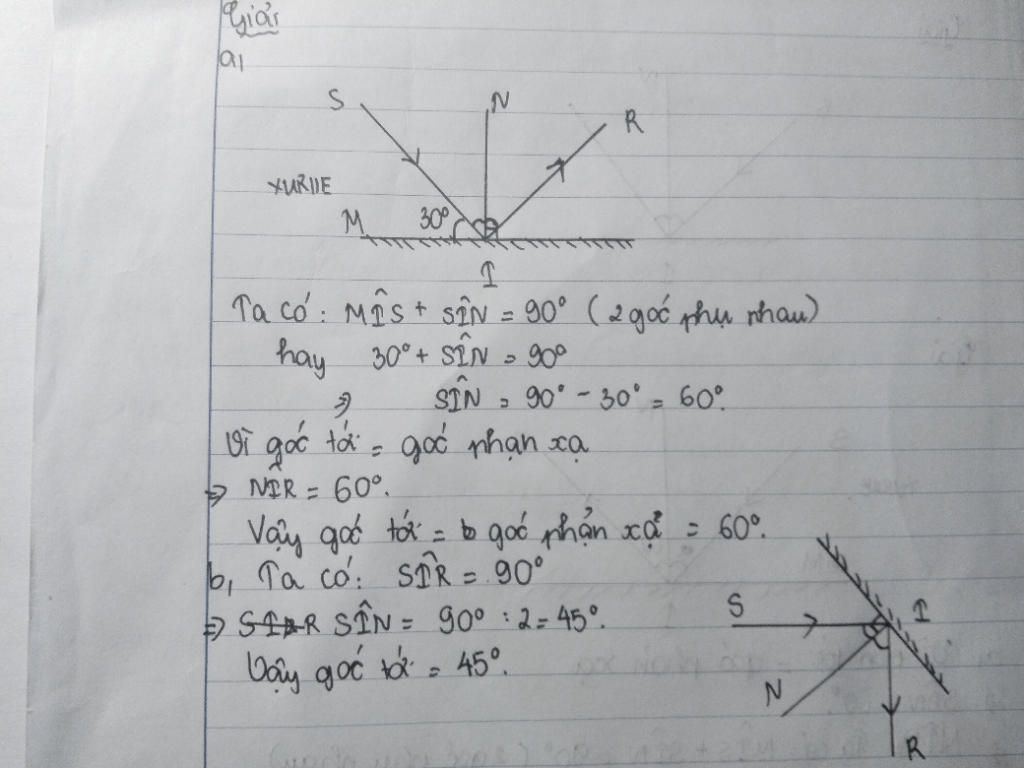 Giải
a,
S N R
XURIIE
M 30°
I
Ta có: MÎS + SÎN = 90° (2 góc phụ nhau)
hay 30° + SÎN = 90°
⇒ SÎN = 90° - 30° = 60°.
Vì góc tới = góc phạn xạ
⇒ NÎR = 60°.
Vậy góc tới = góc phản xạ = 60°.
b, Ta có: SÎR = 90°
⇒ SÎN = 90° : 2 = 45°.
Vậy góc tới = 45°.
S I
N
R